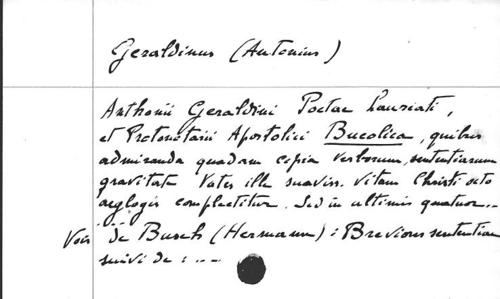 Geraldinus (Antonius)
Anthonii Geraldini Poetae Laureati,
et Protonotarii Apostolici Bucolica, quibus
admiranda quadam copia verborum, sententiarum
gravitate Vates ille suaviss. vitam Christi octo
aeglogis complectitur. Sed in ultimis quatuor...
Voir de Busch (Hermann): Breviores sententiae
suivi de : ...